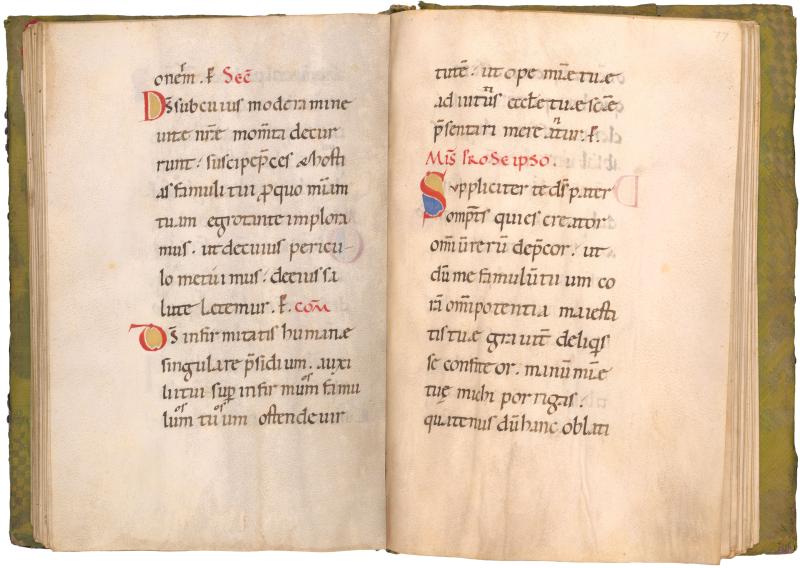 onem̄. P̄ Secr̄
Ds̄ subcuius moderamine
uite nr̄e mom̄ta decur
runt. suscipe p̄ces & hosti
as famuli tui, p̄quo mis̄am
tuam egrotante implora
mus. ut de cuius pericu-
lo metuimus. de eius sa
lute letemur. P̄. com̄
Ds̄ infirmitatis humanæ
singulare p̄sidium. auxi
lii tui sup infirmum famu
lum tuum ostende uir
77
tutē. ut ope mis̄e tuæ
adiutus eccl̄e tuæ sc̄e
p̄sentari mereatur. P̄.
Mis̄ pro se ipso.
Suppliciter te ds̄ pater
omp̄s qui es creator
omiū rerū dep̄cor. ut
dū me famulū tuum co
rā om̄ipotentia maiesta
tis tuæ grauit̄ deliq̄s
se confiteor. manū mis̄e
tuę michi porrigas.
quatenus dū hanc oblati